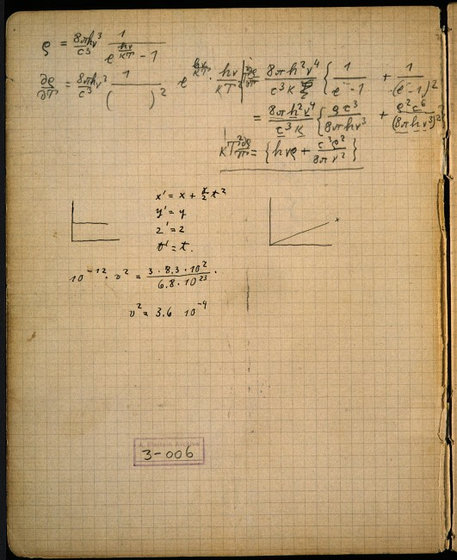 ρ = 8πhν³/c³ 1/(e^(hν/kT) − 1)
∂ρ/∂T = 8πhν³/c³ 1/( )² e^(hν/kT) · hν/kT² ∂ρ/∂T 8πh²ν⁴/c³k { 1/(e − 1) + 1/(e − 1)² }
= 8πh²ν⁴/c³k { ρc³/8πhν³ + ρ²c⁶/(8πhν³)² }
kT² ∂ρ/∂T = { hνρ + c³ρ²/8πν² }
x' = x + γ/2 t²
y' = y
z' = z
t' = t.
x
10⁻¹² · v² = 3 · 8.3 · 10²/6.8 · 10²³ .
v² = 3.6 10⁻⁴
3-006